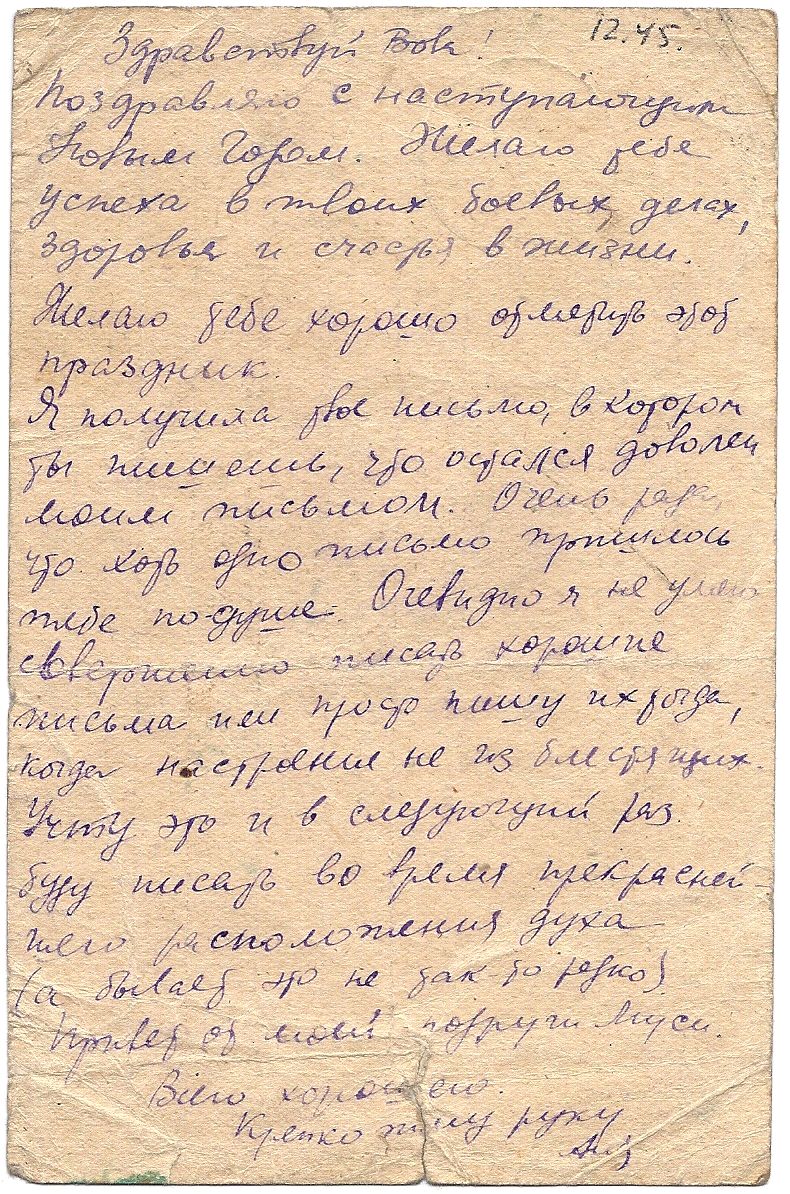 12.45.
Здравствуй Вова!
Поздравляю с наступающим
Новым Годом. Желаю тебе
успеха в твоих боевых делах,
здоровья и счастья в жизни.
Желаю тебе хорошо отметить этот
праздник.
Я получила твое письмо, в котором
ты пишешь, что остался доволен
моим письмом. Очень рада,
что хоть одно письмо пришлось
тебе по-душе. Очевидно я не умею
совершенно писать хорошие
письма или просто пишу их тогда,
когда настроение не из блестящих.
Учту это и в следующий раз
буду писать во время прекрасней-
шего расположения духа
(а бывает это не так-то редко)
Привет от моей подруги Муси.
Всего хорошего.
Крепко жму руку